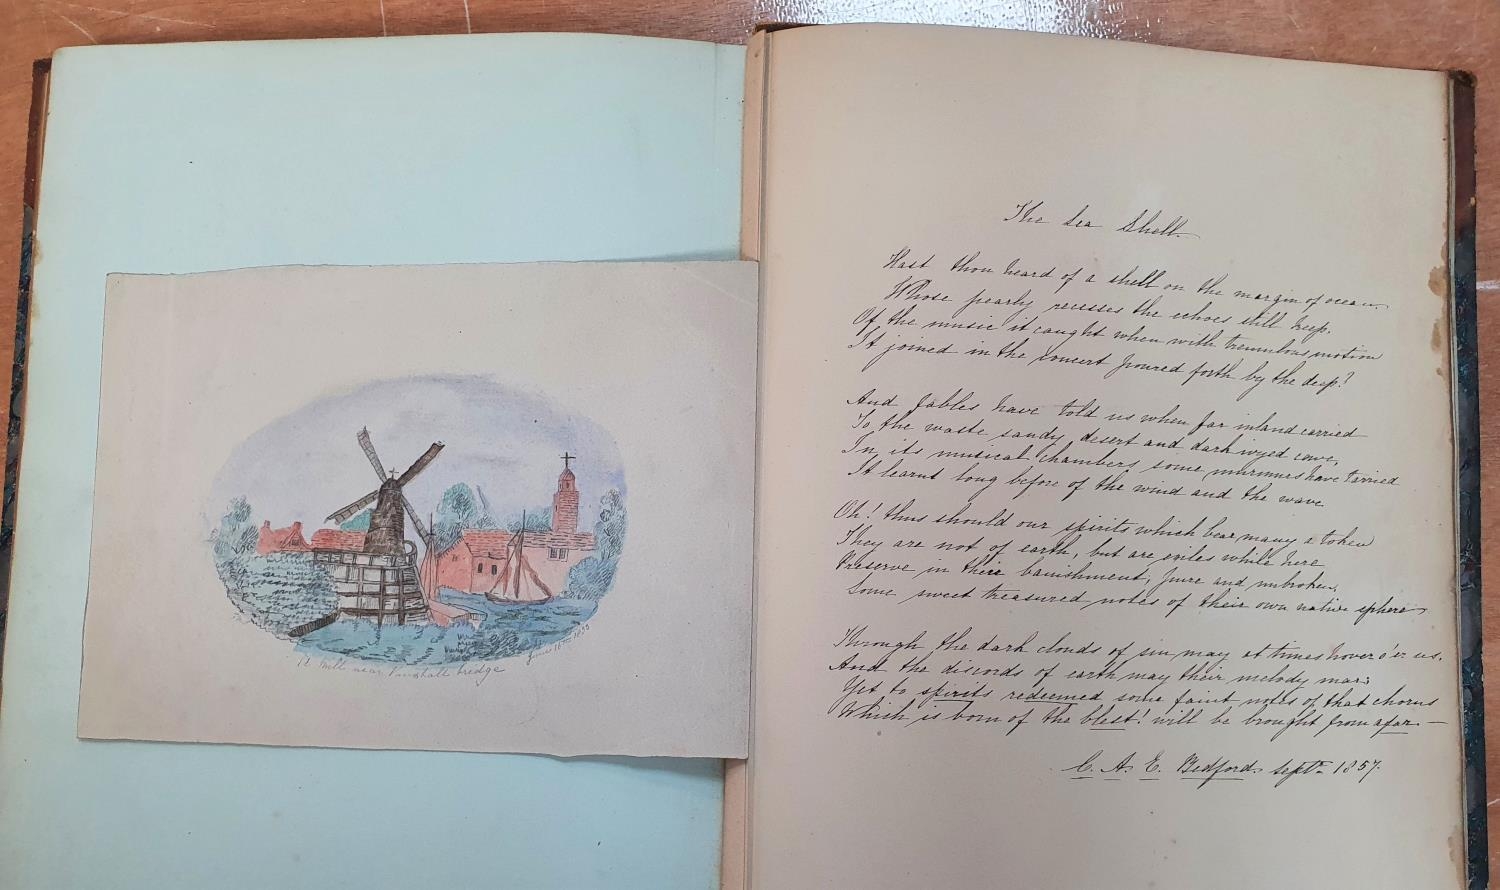 A Mill near Vauxhall bridge
June 18th 18
The Sea Shell.
Hast thou heard of a shell on the margin of ocean
Whose pearly recesses the echoes still keep.
Of the music it caught when with tremulous motion
It joined in the concert poured forth by the deep?
And fables have told us when far inland carried
To the waste sandy desert and dark ivyed cave,
In its musical chambers some murmurs have tarried
It learnt long before of the wind and the wave
Oh! thus should our spirits which bear many a token
They are not of earth, but are exiles while here
Preserve in their banishment, pure and unbroken,
Some sweet treasured notes of their own native sphere
Through the dark clouds of sin may at times hover o'er us.
And the discords of earth may their melody mar;
Yet to spirits redeemed some faint notes of that chorus
Which is born of the blest! will be brought from afar—
C. A. E. Bedford. Septr 1857.